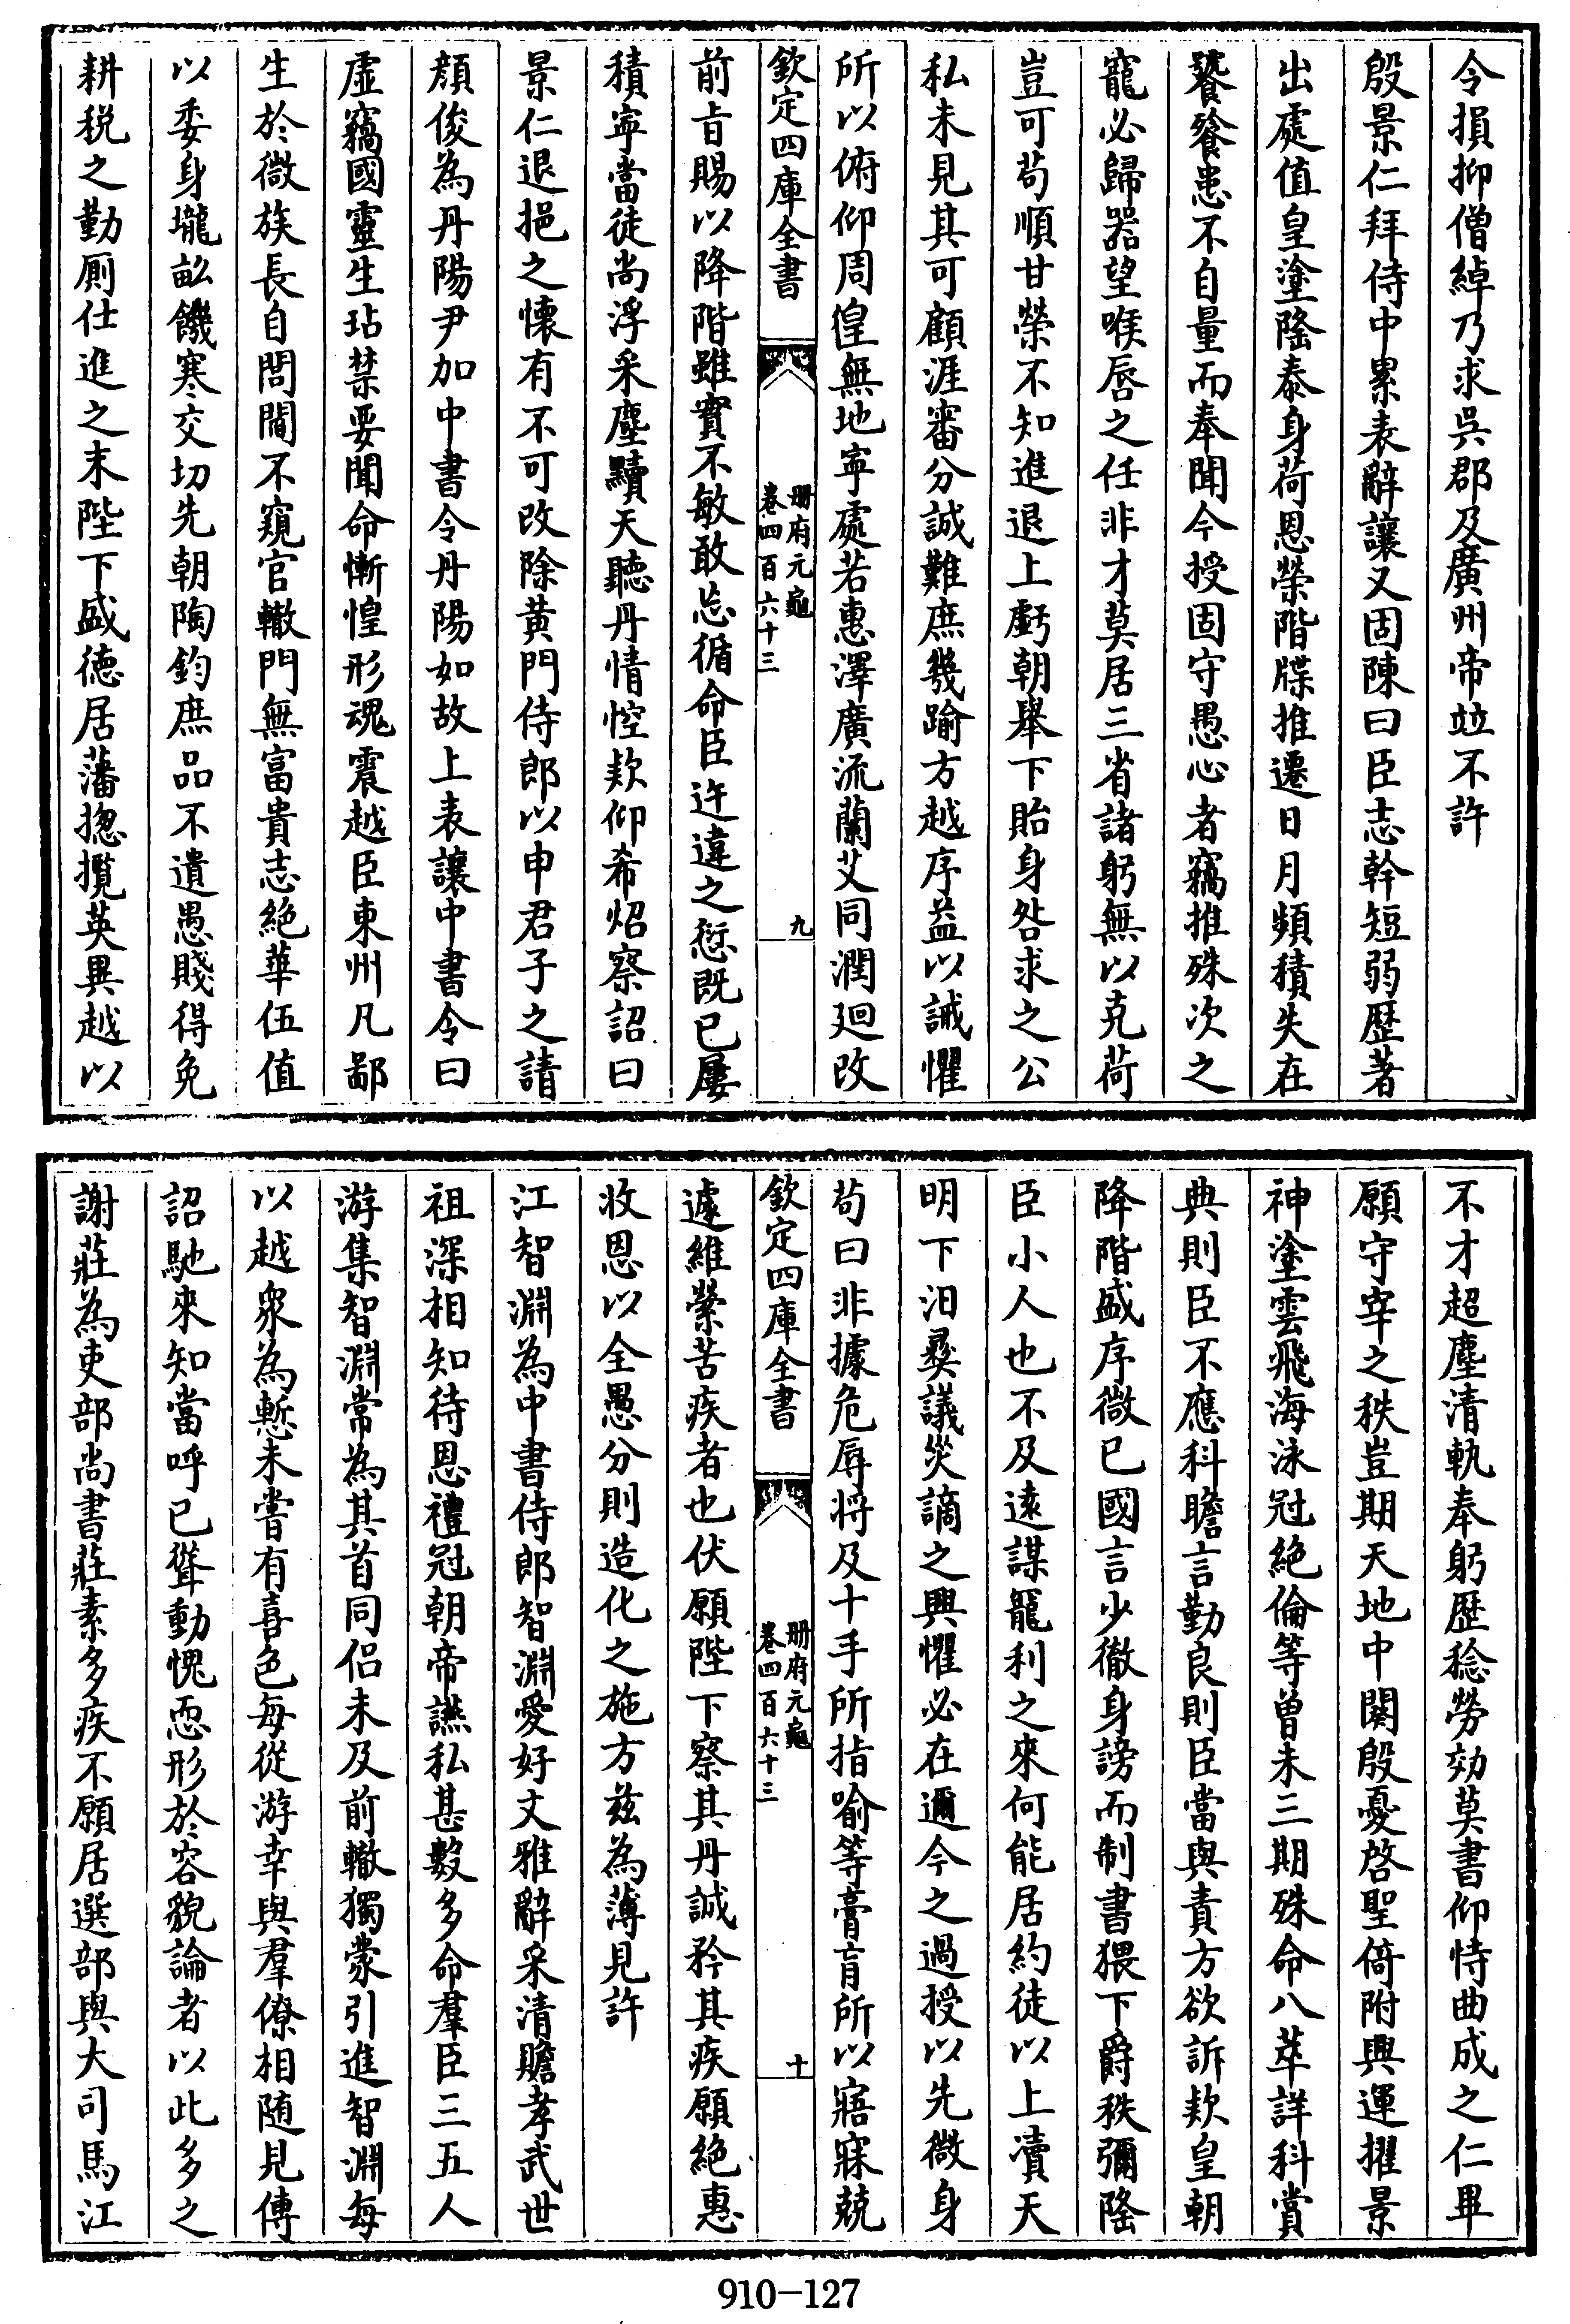 令損抑僧綽乃求吳郡及廣州帝竝不許
殷景仁拜侍中累表辭讓又固陳曰臣志幹短弱歴著
出處值皇塗隆泰身荷恩榮階牒推遷日月頻積失在
饕餮患不自量而奉聞今授固守愚心者竊推殊次之
寵必歸器望喉唇之任非才莫居三省諸躬無以克荷
豈可苟順甘榮不知進退上虧朝舉下貽身咎求之公
私未見其可顧涯審分誠難庶幾踰方越序益以誡懼
所以俯仰周偟無地寧處若惠澤廣流蘭艾同潤廻改
欽定四庫全書
冊府元龜
卷四百六十三
九
前旨賜以降階雖實不敏敢忘循命臣迕違之愆既已屢
積寧當徒尚浮采塵黷天聽丹情悾款仰希炤察詔曰
景仁退挹之懷有不可改除黄門侍郎以申君子之請
顔俊為丹陽尹加中書令丹陽如故上表讓中書令曰
虛竊國靈坐玷禁要聞命慚惶形魂震越臣東州凡鄙
生於微族長自閭閻不窺官轍門無富貴志絶華伍值
以委身壠畝饑寒交切先朝陶鈞庶品不遺愚賤得免
耕税之勤厠仕進之末陛下盛徳居藩揔攬英異越以
不才超塵清軌奉躬歴稔勞効莫書仰恃曲成之仁畢
願守宰之秩豈期天地中闋殷憂啓聖倚附興運擢景
神塗雲飛海泳冠絶倫等曽未三期殊命八萃詳科賞
典則臣不應科瞻言勤良則臣當與責方欲訴款皇朝
降階盛序微已國言少徹身謗而制書猥下爵秩彌隆
臣小人也不及逺謀寵利之來何能居約徒以上瀆天
明下汨彝議災謫之興懼必在邇今之過授以先微身
苟曰非據危辱将及十手所指喻等膏肓所以寤寐兢
欽定四庫全書
冊府元龜
卷四百六十三
十
遽維縈苦疾者也伏願陛下察其丹誠矜其疾願絶惠
收恩以全愚分則造化之施方兹為薄見許
江智淵為中書侍郎智淵愛好文雅辭采清贍孝武世
祖深相知待恩禮冠朝帝讌私甚數多命羣臣三五人
游集智淵常為其首同侶未及前轍獨蒙引進智淵每
以越衆為慙未嘗有喜色每從游幸與羣僚相随見傳
詔馳來知當呼已聳動愧恧形於容貌論者以此多之
謝莊為吏部尚書莊素多疾不願居選部與大司馬江
910-127